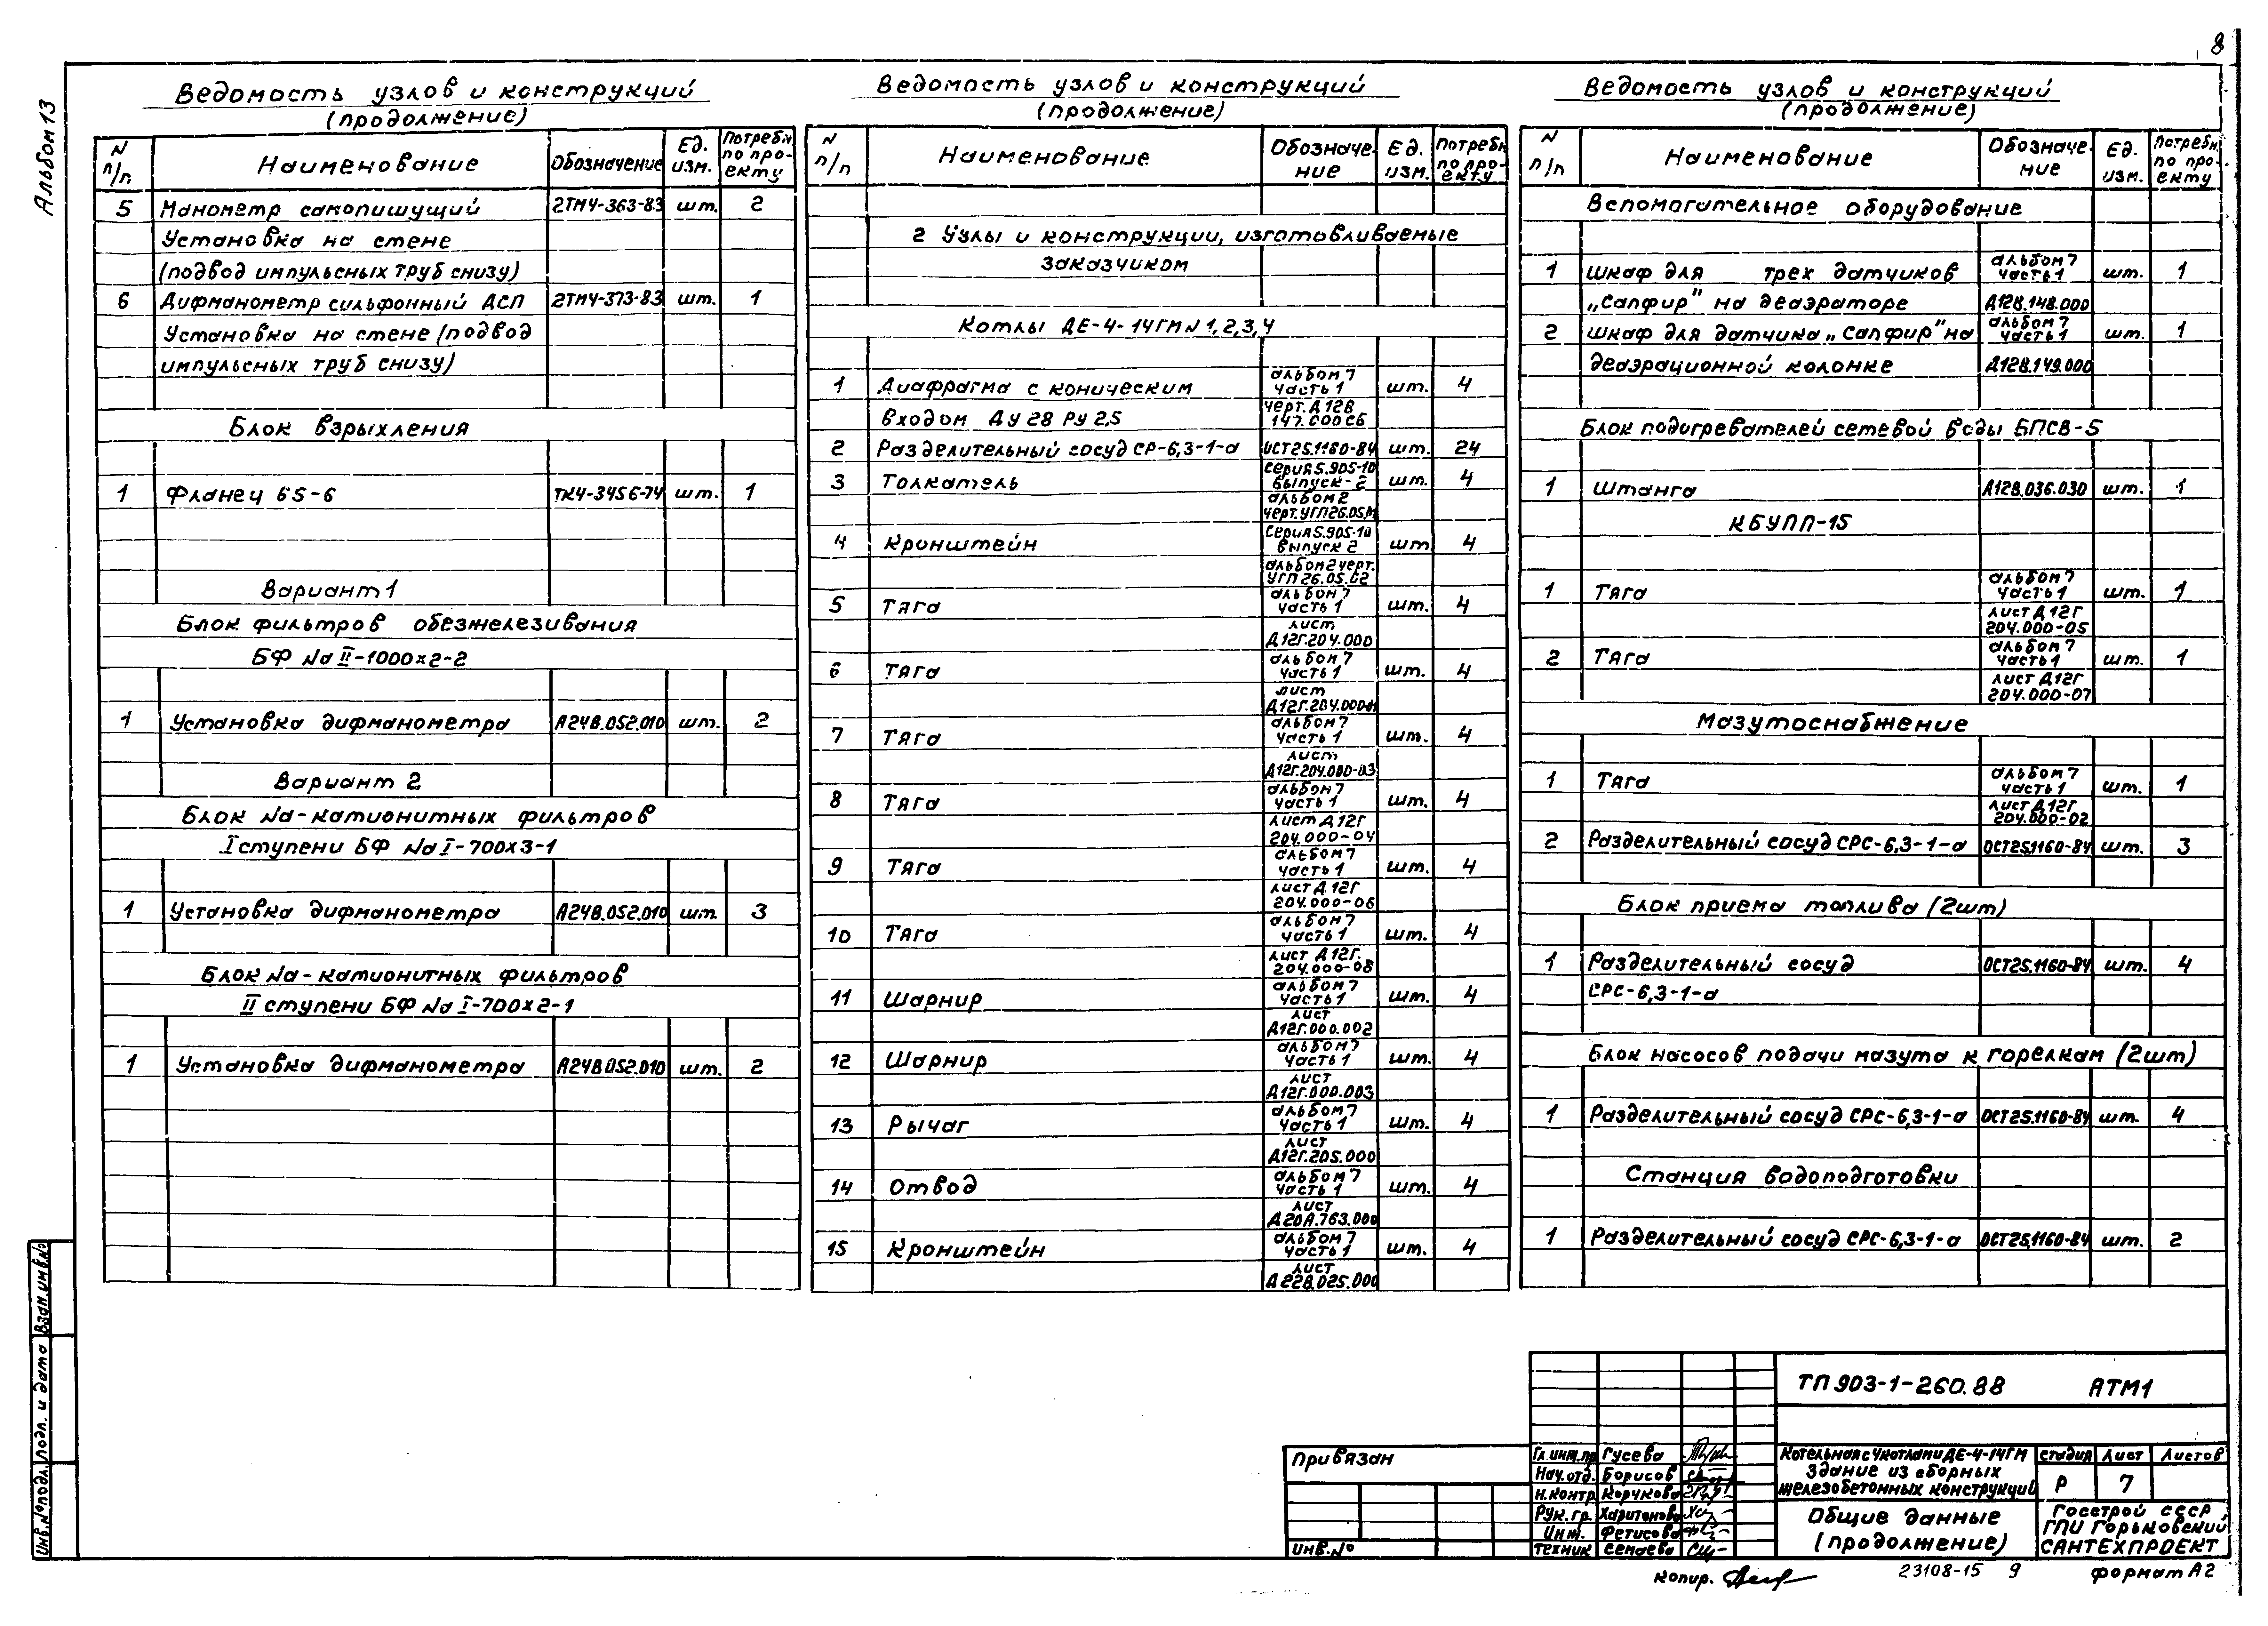 8
Альбом 13
Ведомость узлов и конструкций
(продолжение)
N п/п. Наименование Обозначение Ед. изм. Потребн. по проекту
5 Манометр самопишущий 2ТМ4-363-83 шт. 2
Установка на стене
(подвод импульсных труб снизу)
6 Дифманометр сильфонный ДСП 2ТМ4-373-83 шт. 1
Установка на стене (подвод
импульсных труб снизу)
Блок взрыхления
1 Фланец 65-6 ТК4-3456-74 шт. 1
Вариант 1
Блок фильтров обезжелезивания
БФ Na II-1000х2-2
1 Установка дифманометра А24В.052.010 шт. 2
Вариант 2
Блок Na-катионитных фильтров
I ступени БФ Na I-700х3-1
1 Установка дифманометра А24В.052.010 шт. 3
Блок Na-катионитных фильтров
II ступени БФ Na I-700х2-1
1 Установка дифманометра А24В.052.010 шт. 2
Ведомость узлов и конструкций
(продолжение)
N п/п Наименование Обозначение Ед. изм. Потребн. по проекту
2 Узлы и конструкции, изготовливаемые
заказчиком
Котлы ДЕ-4-14ГМ N 1,2,3,4
1 Диафрагма с коническим альбом 7 часть 1 шт. 4
входом Ду 28 Ру 2,5 черт. Д12В 147.000СБ
2 Разделительный сосуд СР-6,3-1-а ОСТ25.1160-84 шт. 24
3 Толкатель Серия 5.905-10 выпуск-2 шт. 4
альбом 2 черт. УГП26.05.М
4 Кронштейн Серия 5.905-10 выпуск 2 шт 4
альбом 2 черт. УГП 26.05.02
5 Тяга альбом 7 часть 1 шт. 4
лист Д12Г.204.000
6 Тяга альбом 7 часть 1 шт. 4
лист Д12Г.204.000-11
7 Тяга альбом 7 часть 1 шт. 4
лист Д12Г.204.000-03
8 Тяга альбом 7 часть 1 шт. 4
лист Д12Г 204.000-04
9 Тяга альбом 7 часть 1 шт. 4
лист Д12Г 204.000-06
10 Тяга альбом 7 часть 1 шт. 4
лист Д12Г. 204.000-08
11 Шарнир альбом 7 часть 1 шт. 4
лист Д12Г.000.002
12 Шарнир альбом 7 часть 1 шт. 4
лист Д12Г.000.003
13 Рычаг альбом 7 часть 1 шт. 4
лист Д12Г.205.000
14 Отвод альбом 7 часть 1 шт. 4
лист Д20А.763.000
15 Кронштейн альбом 7 часть 1 шт. 4
лист Д22В.025.000
Ведомость узлов и конструкций
(продолжение)
N п/п Наименование Обозначение Ед. изм. Потребн. по проекту
Вспомогательное оборудование
1 Шкаф для трех датчиков альбом 7 часть 1 шт. 1
„Сапфир" на деаэраторе Д12В.148.000
2 Шкаф для датчика „Сапфир" на альбом 7 часть 1 шт. 1
деаэрационной колонке Д12В.149.000
Блок подогревателей сетевой воды БПСВ-5
1 Штанга Д12В.036.030 шт. 1
КБУПП-15
1 Тяга альбом 7 часть 1 шт. 1
лист Д12Г 204.000-05
2 Тяга альбом 7 часть 1 шт. 1
лист Д12Г 204.000-07
Мазутоснабжение
1 Тяга альбом 7 часть 1 шт. 1
лист Д12Г 204.000-02
2 Разделительный сосуд СРС-6,3-1-а ОСТ25.1160-84 шт. 3
Блок приема топлива (2шт)
1 Разделительный сосуд ОСТ25.1160-84 шт. 4
СРС-6,3-1-а
Блок насосов подачи мазута к горелкам (2шт)
1 Разделительный сосуд СРС-6,3-1-а ОСТ25.1160-84 шт. 4
Станция водоподготовки
1 Разделительный сосуд СРС-6,3-1-а ОСТ25.1160-84 шт. 2
Инв. N подл. Подп. и дата Взам. инв. N
Привязан
Инв. N
Гл. инж. пр Гусева
Нач. отд. Борисов
Н. контр Корчкова
Рук. гр. Харитонова
Инж. Фетисова
Техник Семаева
ТП 903-1-260.88 АТМ1
Котельная с 4 котлами ДЕ-4-14ГМ
Здание из сборных
железобетонных конструкций
Стадия Лист Листов
Р 7
Общие данные
(продолжение)
Госстрой СССР
ГПИ Горьковский
САНТЕХПРОЕКТ
копир.
23108-15 9
формат А2